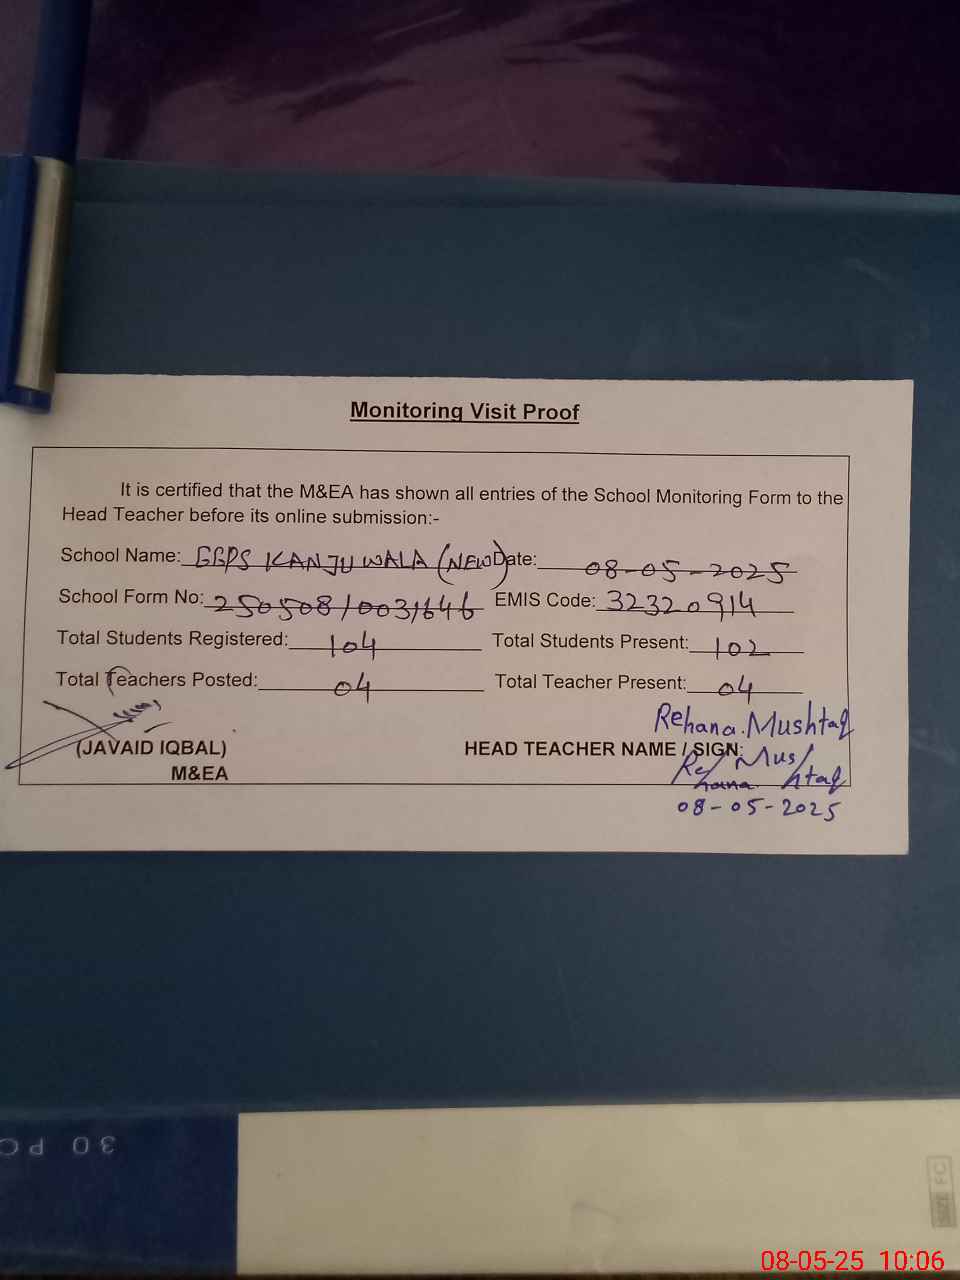 Monitoring Visit Proof
It is certified that the M&EA has shown all entries of the School Monitoring Form to the
Head Teacher before its online submission:-
School Name: GGPS KANJU WALA (NEW) Date: 08-05-2025
School Form No: 250508/0031646 EMIS Code: 32320914
Total Students Registered: 104 Total Students Present: 102
Total Teachers Posted: 04 Total Teacher Present: 04
Rehana.Mushtaq
(JAVAID IQBAL) HEAD TEACHER NAME / SIGN:
M&EA
Rehana Mushtaq
08-05-2025
30 PC
SIZE FC
08-05-25 10:06